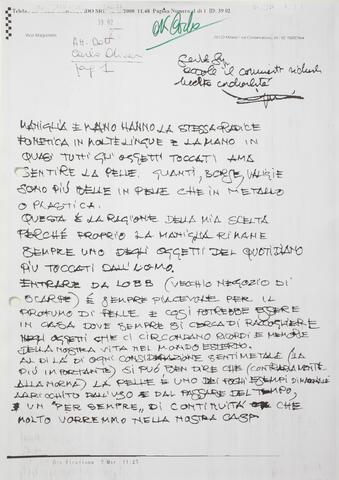 2000 11.48 Pagina Numero 1 di 1 ID: 39 02
OK Carlo
Vico Magistretti
20122 Milano - via Conservatorio, 20 - 02 76002964
Att. Dott
Carlo
pag 1
MANIGLIA E MANO HANNO LA STESSA RADICE
FONETICA IN MOLTE LINGUE E LA MANO IN
QUASI TUTTI GLI OGGETTI TOCCATI AMA
SENTIRE LA PELLE, GUANTI, BORSE, VALIGIE
SONO PIÙ BELLE IN PELLE CHE IN METALLO
O PLASTICA.
QUESTA È LA RAGIONE DELLA MIA SCELTA
PERCHÉ PROPRIO LA MANIGLIA RIMANE
SEMPRE UNO DEGLI OGGETTI DEL QUOTIDIANO
PIÙ TOCCATI DALL'UOMO.
ENTRARE DA LOBB (VECCHIO NEGOZIO DI
SCARPE) È SEMPRE PIACEVOLE PER IL
PROFUMO DI PELLE E COSÌ POTREBBE ESSERE
IN CASA DOVE SEMPRE SI CERCA DI RACCOGLIERE
NEGLI OGGETTI CHE CI CIRCONDANO RICORDI E MEMORIE
DELLA NOSTRA VITA NEL MONDO ESTERNO.
AL DI LÀ DI OGNI CONSIDERAZIONE SENTIMETALE (LA
PIÙ IMPORTANTE) SI PUÒ BEN DIRE CHE (CONTRARIAMENTE
ALLA NORMA) LA PELLE È UNO DEI POCHI ESEMPI DI MATERIALE
ARRICCHITO DALL'USO E DAL PASSARE DEL TEMPO,
UN "PER SEMPRE", DI CONTINUITÀ CHE
MOLTO VORREMMO NELLA NOSTRA CASA
7 Mar. 11:25